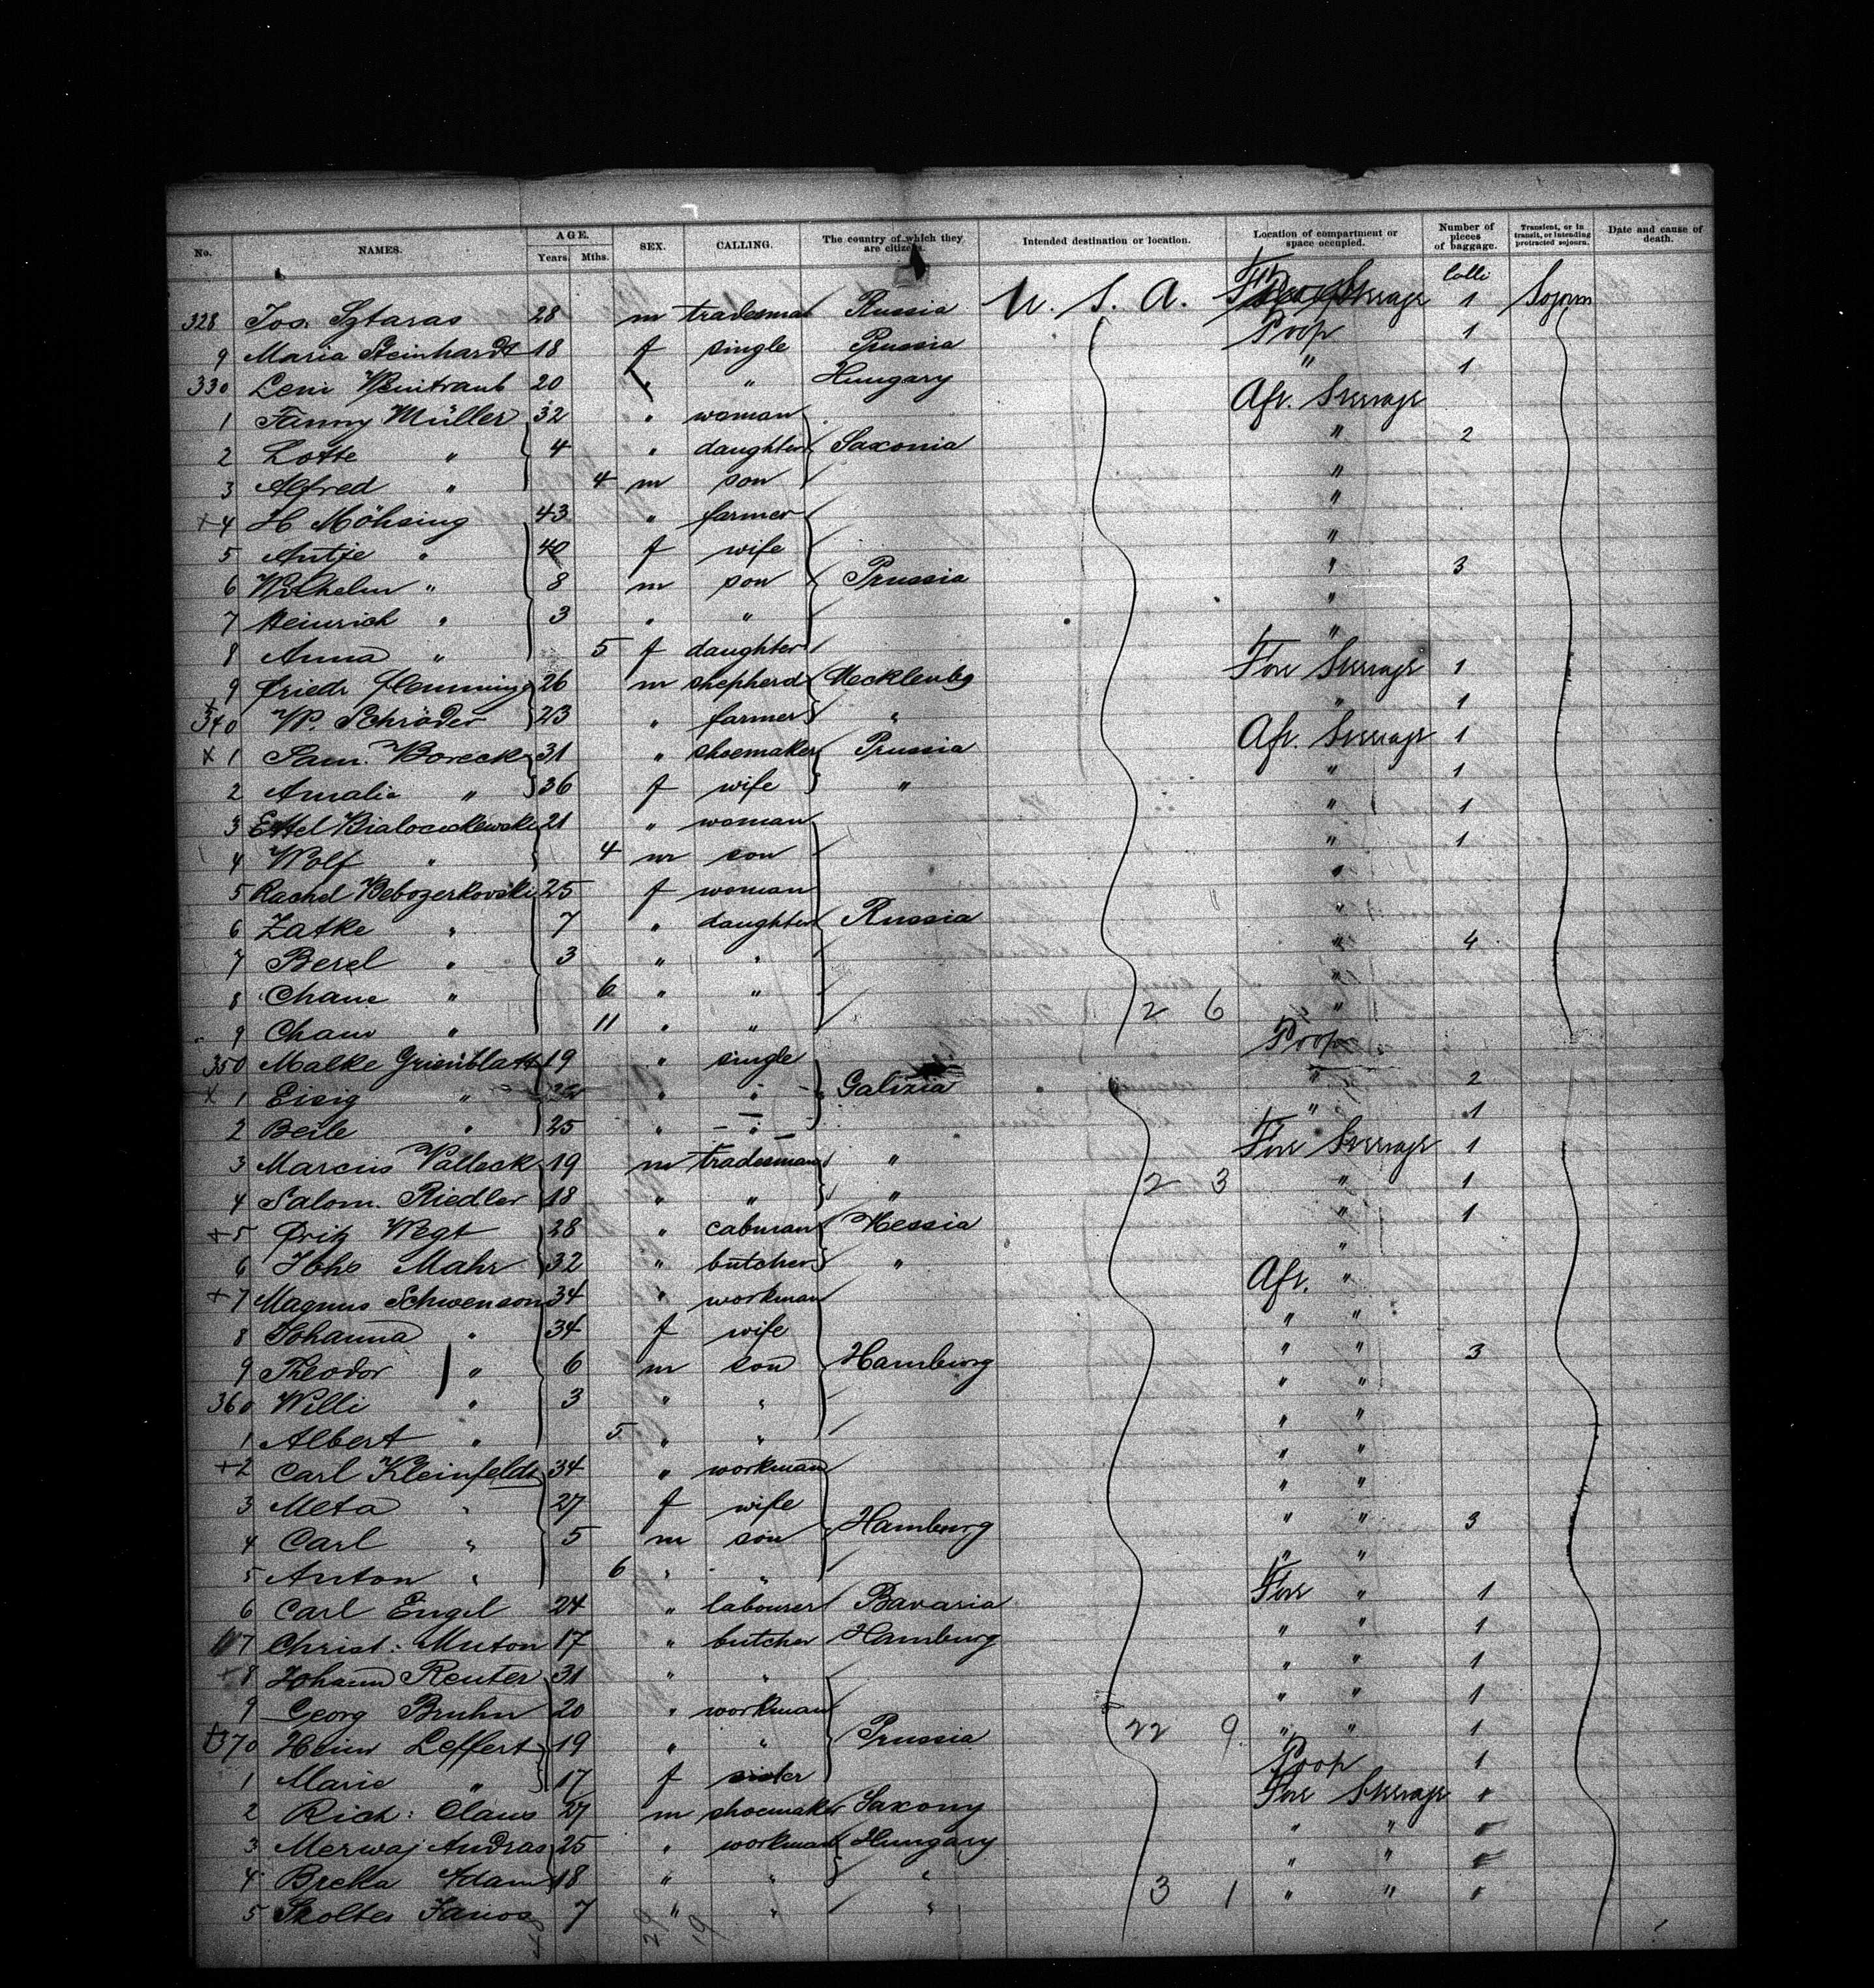 No. NAMES. AGE. Years. Mths. SEX. CALLING. The country of which they are citizens. Intended destination or location. Location of compartment or space occupied. Number of pieces of baggage. Transient, or in transit, or intending protracted sojourn. Date and cause of death.
Colli
328 Jos. Sztaras 28 m tradesman Russia U. S. A. Steerage 1 Sojourn
9 Maria Steinhardt 18 f single Prussia Poop 1
330 Leni Weintraub 20 " " Hungary " 1
1 Fanny Müller 32 " woman Aft. Steerage
2 Lotte " 4 " daughter Saxonia " 2
3 Alfred " 4 m son "
+ 4 H Möhsing 43 " farmer "
5 Antje " 40 f wife "
6 Wilhelm " 8 m son Prussia " 3
7 Heinrich " 3 " " "
8 Anna " 5 f daughter "
9 Friedr Flemming 26 m shepherd Mecklenbg Fore Steerage 1
x 340 W. Schröder 23 " farmer " " 1
x 1 Sam. Boreck 31 " shoemaker Prussia Aft. Steerage 1
2 Amalie " 36 f wife " " 1
3 Ettel 21 " woman " 1
4 Wolf " 4 m son " 1
5 Rachel Bebozerkovski 25 f woman "
6 Zatke " 7 " daughter Russia "
7 Berel " 3 " " " 4
8 Chane " 6 " " "
9 Chaw " 11 " " 2 6 "
350 Malke Grünblatt 19 " single Poop
x 1 Eisig " " " Galizia " 2
2 Beile " 25 " " " 1
3 Marcus Valleck 19 m tradesman " Fore Steerage 1
4 Salom. Riedler 18 " " " 2 3 " 1
+ 5 Fritz Wegt 28 " cabman Hessia " 1
6 Johs Mahr 32 " butcher " "
+ 7 Magnus Schwenson 34 " workman Aft. "
8 Johanna " 34 f wife " "
9 Theodor " 6 m son Hamburg " " 3
360 Willi " 3 " " " "
1 Albert " 5 " " " "
+ 2 Carl Kleinfeldt 34 " workman " "
3 Meta " 27 f wife " "
4 Carl " 5 m son Hamburg " " 3
5 Anton " 6 " " " "
6 Carl Engel 24 " labourer Bavaria Fore " 1
7 Christ: Muton 17 " butcher Hamburg " " 1
+ 8 Johann Reuter 31 " " " " 1
9 Georg Bruhn 20 " workman " " 1
+ 370 Heinr Leffert 19 " " Prussia 22 9 " " 1
1 Marie " 17 f sister Poop 1
2 Rich: Claus 27 m shoemaker Saxony Fore Steerage
3 Merwaj Andras 25 " workman Hungary " "
4 Breka Adam 18 " " " " "
5 Skoltes Janos 7 " " " 3 1 " "
29 19